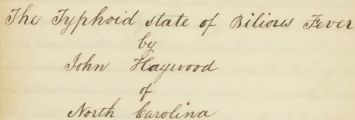 The Typhoid state of Bilious Fever
by
John Haywood
of
North Carolina